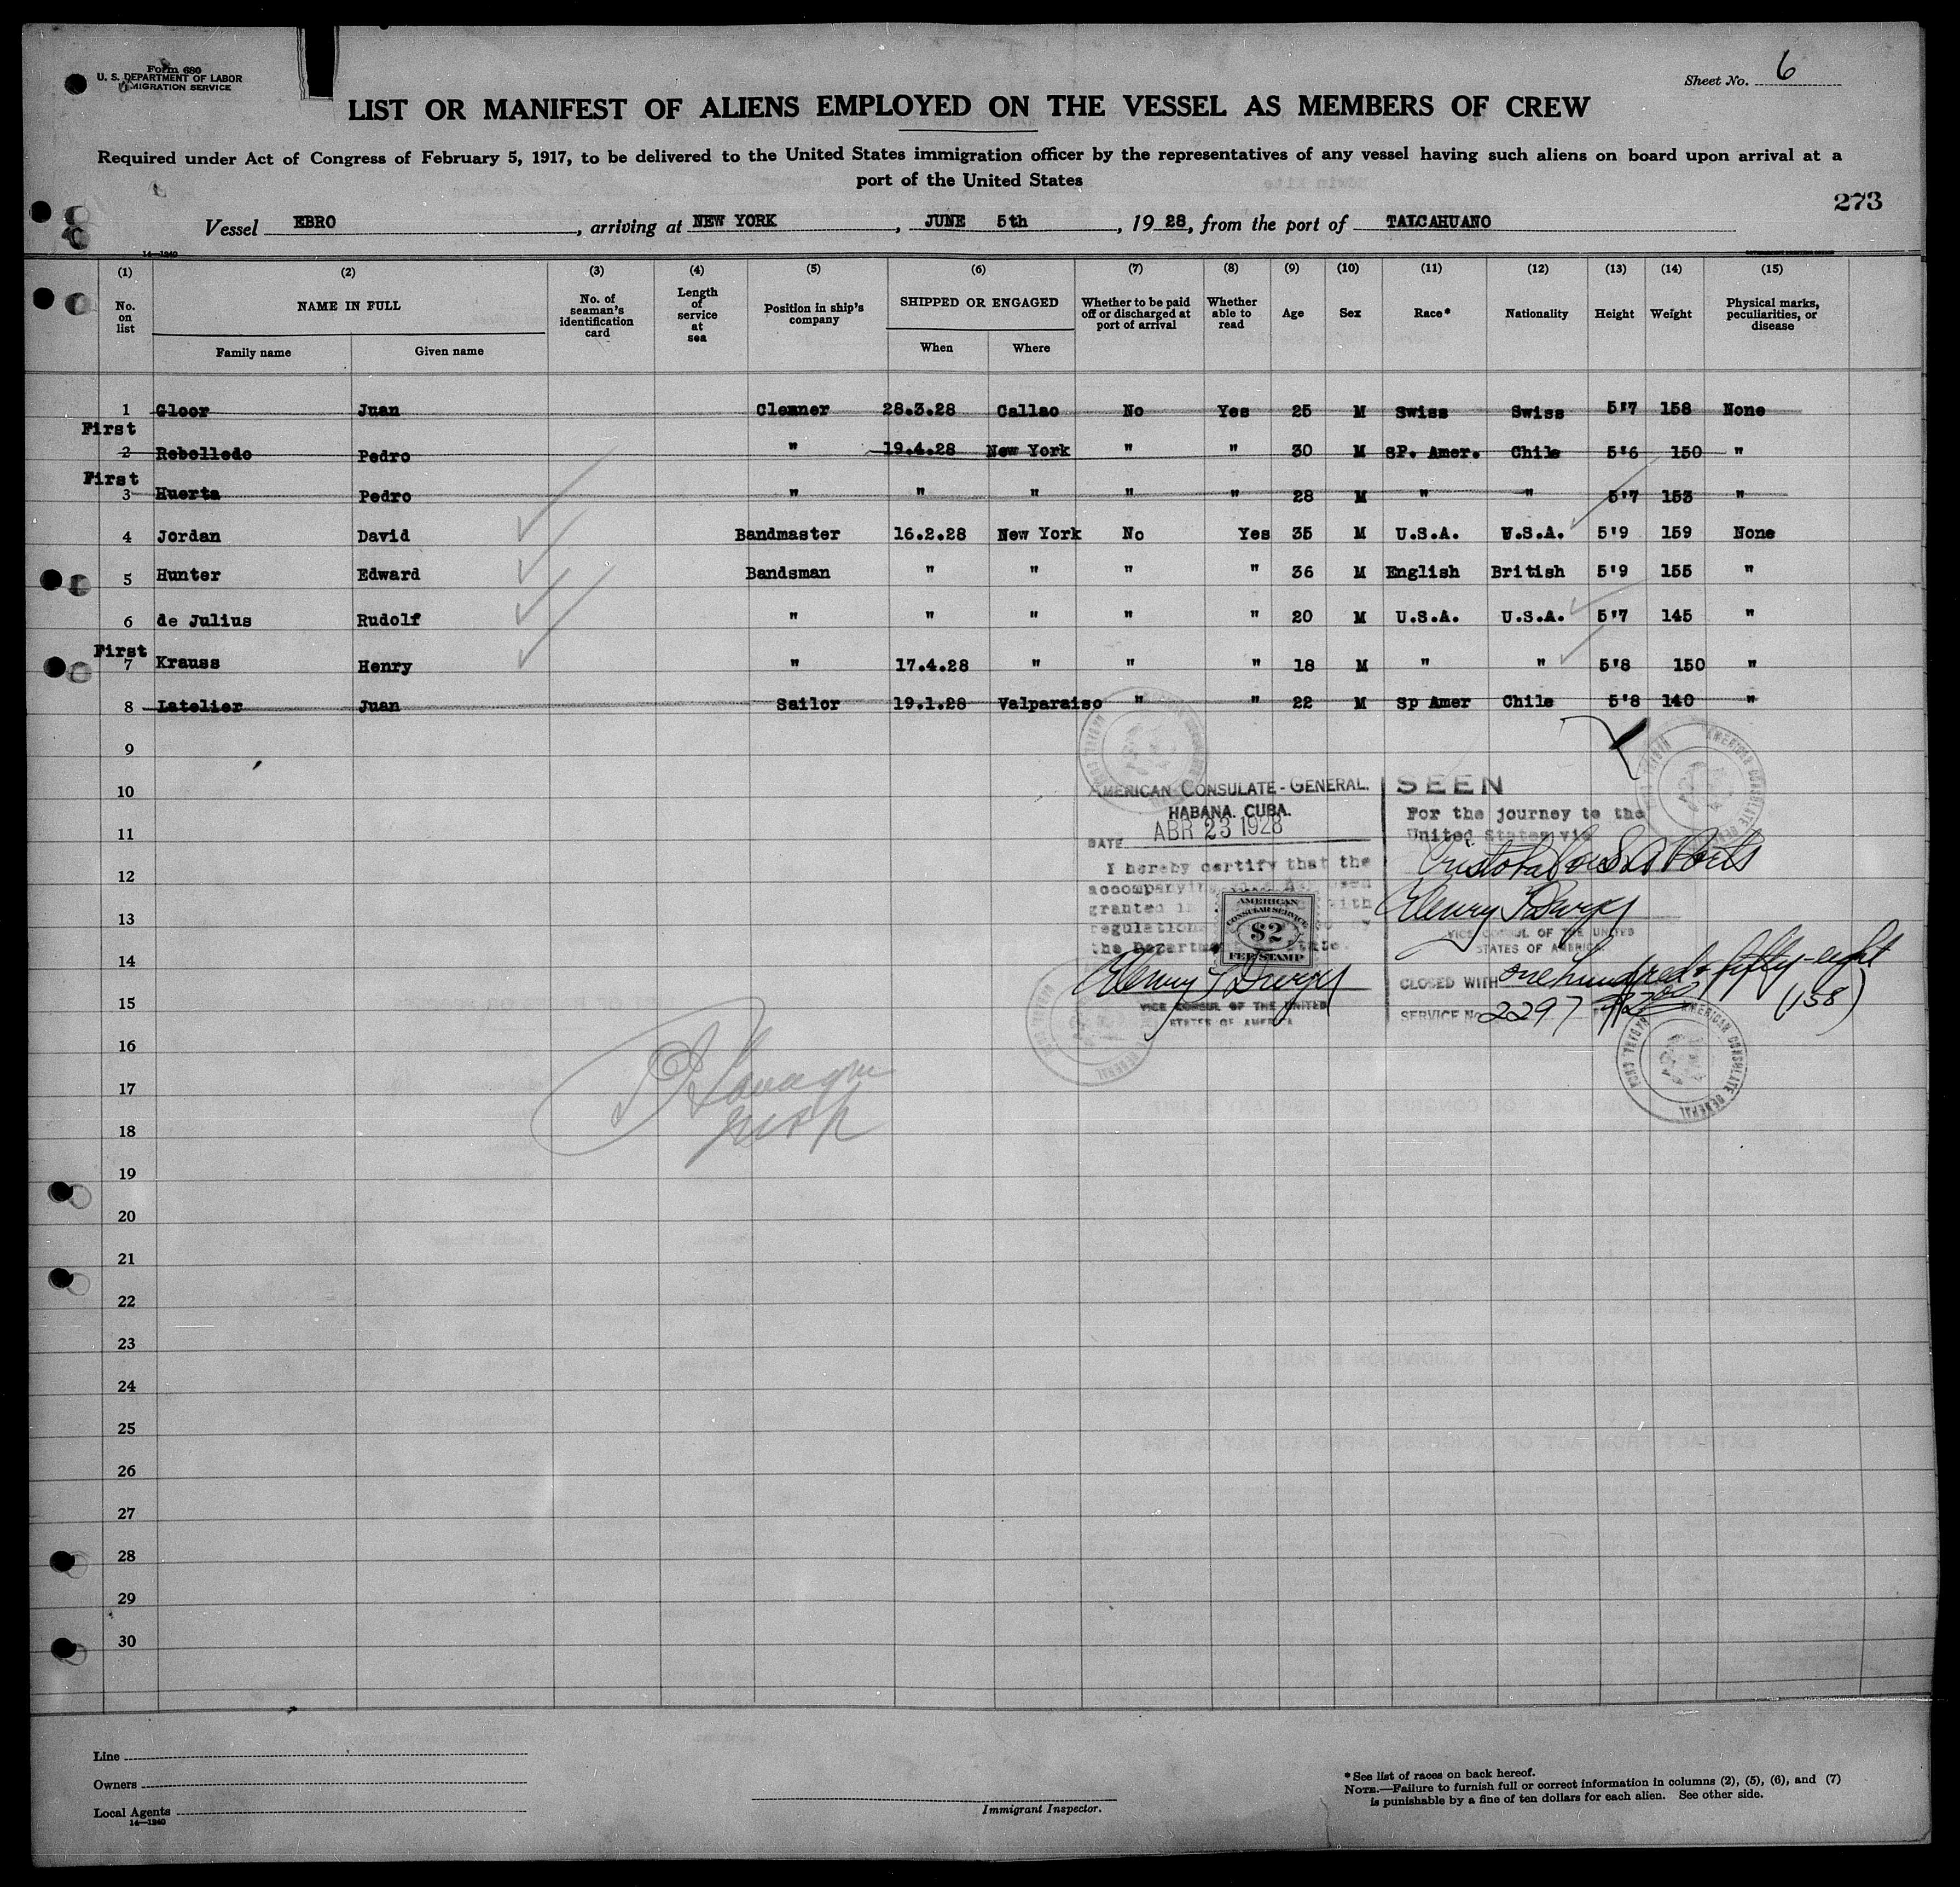 Form 680
U. S. DEPARTMENT OF LABOR
IMMIGRATION SERVICE
Sheet No. 6
LIST OR MANIFEST OF ALIENS EMPLOYED ON THE VESSEL AS MEMBERS OF CREW
Required under Act of Congress of February 5, 1917, to be delivered to the United States immigration officer by the representatives of any vessel having such aliens on board upon arrival at a
port of the United States
273
Vessel EBRO, arriving at NEW YORK, JUNE 5th, 1928, from the port of TALCAHUANO
14—1240
(1) (2) (3) (4) (5) (6) (7) (8) (9) (10) (11) (12) (13) (14) (15)
No. on list NAME IN FULL Family name Given name No. of seaman's identification card Length of service at sea Position in ship's company SHIPPED OR ENGAGED When Where Whether to be paid off or discharged at port of arrival Whether able to read Age Sex Race* Nationality Height Weight Physical marks, peculiarities, or disease
1 Gloor Juan Cleaner 28.3.28 Callao No Yes 25 M Swiss Swiss 5'7 158 None
First
2 Rebolledo Pedro " 19.4.28 New York " " 30 M SP. Amer. Chile 5'6 150 "
First
3 Huerta Pedro " " " " " 28 M " " 5'7 153 "
4 Jordan David Bandmaster 16.2.28 New York No Yes 35 M U.S.A. U.S.A. 5'9 159 None
5 Hunter Edward Bandsman " " " " 36 M English British 5'9 155 "
6 de Julius Rudolf " " " " " 20 M U.S.A. U.S.A. 5'7 145 "
First
7 Krauss Henry " 17.4.28 " " " 18 M " " 5'8 150 "
8 Latelier Juan Sailor 19.1.28 Valparaiso " " 22 M Sp Amer Chile 5'8 140 "
9
10
11
12
13
14
15
16
17
18
19
20
21
22
23
24
25
26
27
28
29
30
AMERICAN CONSULATE-GENERAL.
HABANA. CUBA.
DATE ABR 23 1928
I hereby certify that the
accompanying
granted in with
regulation by
the Department State.
AMERICAN
CONSULAR SERVICE
$2
FEE STAMP
VICE CONSUL OF THE UNITED
STATES OF AMERICA
SEEN
For the journey to the
United States via
Cristobal Ports
Henry
VICE CONSUL OF THE UNITED
STATES OF AMERICA
CLOSED WITH one hundred & fifty-eight
(158)
SERVICE No 2297
AMERICAN CONSULATE GENERAL
Line
Owners
Local Agents
14—1240
Immigrant Inspector.
* See list of races on back hereof.
NOTE.—Failure to furnish full or correct information in columns (2), (5), (6), and (7)
is punishable by a fine of ten dollars for each alien. See other side.